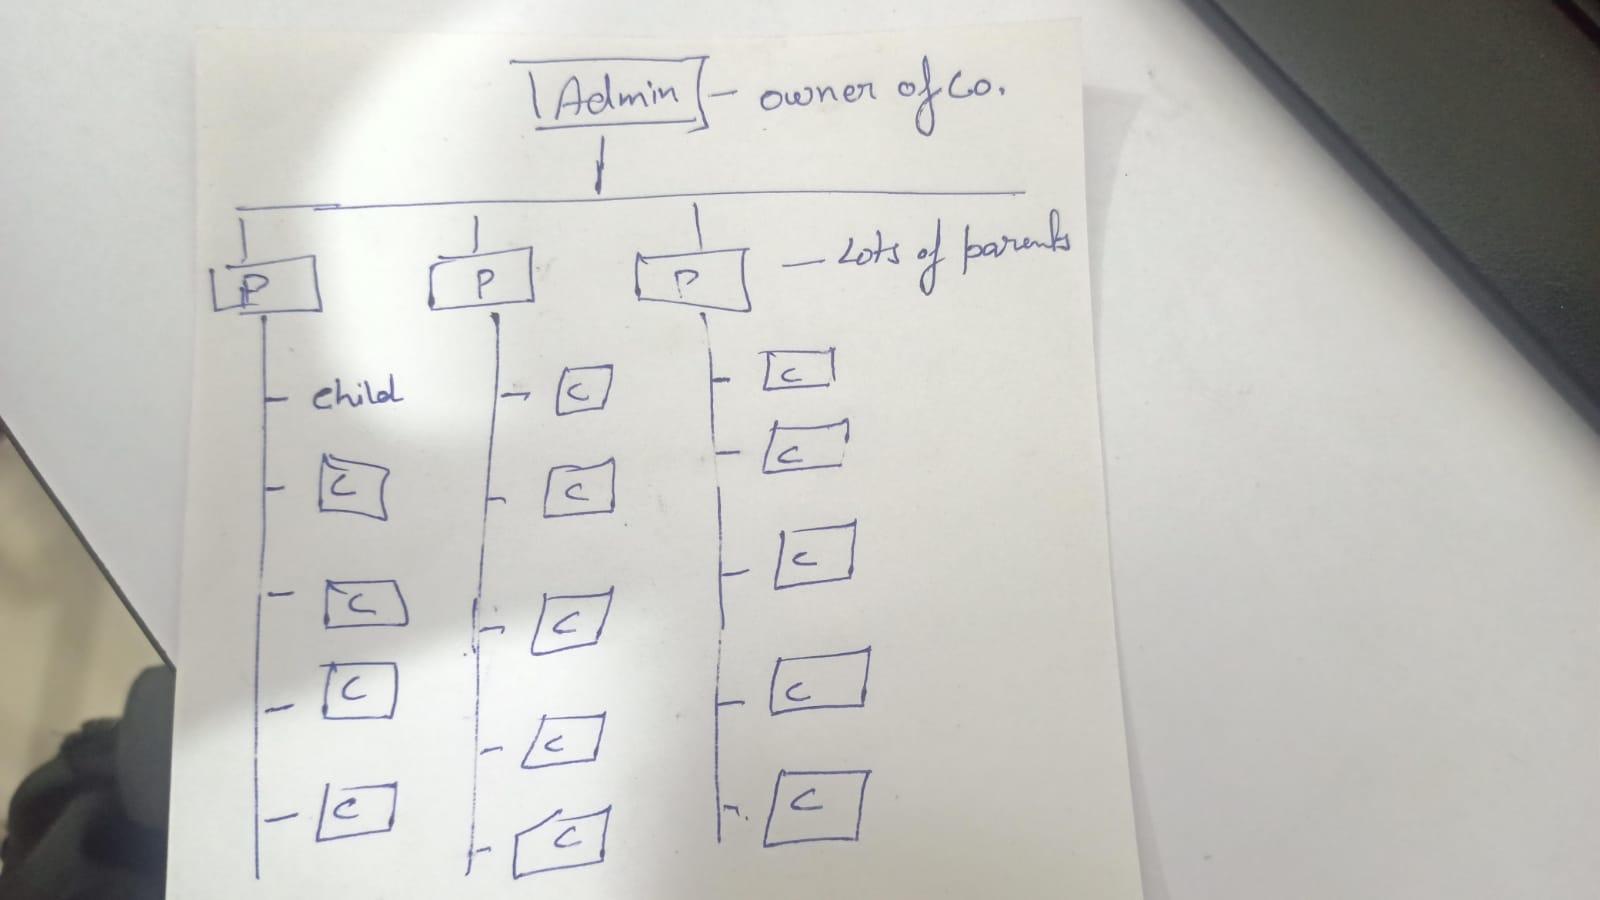 Admin - owner of Co.
P P P - Lots of parents
child C C
C C C
C C C
C C C
C C C